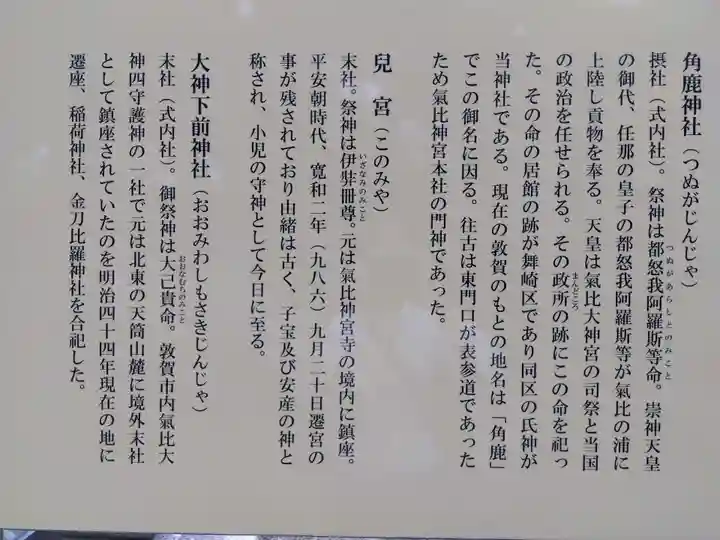 角鹿神社（つぬがじんじゃ）
摂社（式内社）。祭神は都怒我阿羅斯等命。崇神天皇
つぬがあらしとのみこと
の御代、任那の皇子の都怒我阿羅斯等が氣比の浦に
上陸し貢物を奉る。天皇は氣比大神宮の司祭と当国
の政治を任せられる。その政所の跡にこの命を祀っ
まんどころ
た。その命の居館の跡が舞崎区であり同区の氏神が
当神社である。現在の敦賀のもとの地名は「角鹿」
でこの御名に因る。往古は東門口が表参道であった
ため氣比神宮本社の門神であった。
兒宮（このみや）
末社。祭神は伊弉冊尊。元は氣比神宮寺の境内に鎮座。
いざなみのみこと
平安朝時代、寛和二年（九八六）九月二十日遷宮の
事が残されており由緒は古く、子宝及び安産の神と
称され、小児の守神として今日に至る。
大神下前神社（おおみわしもさきじんじゃ）
末社（式内社）。御祭神は大己貴命。敦賀市内氣比大
おおなむちのみこと
神四守護神の一社で元は北東の天筒山麓に境外末社
として鎮座されていたのを明治四十四年現在の地に
遷座、稲荷神社、金刀比羅神社を合祀した。